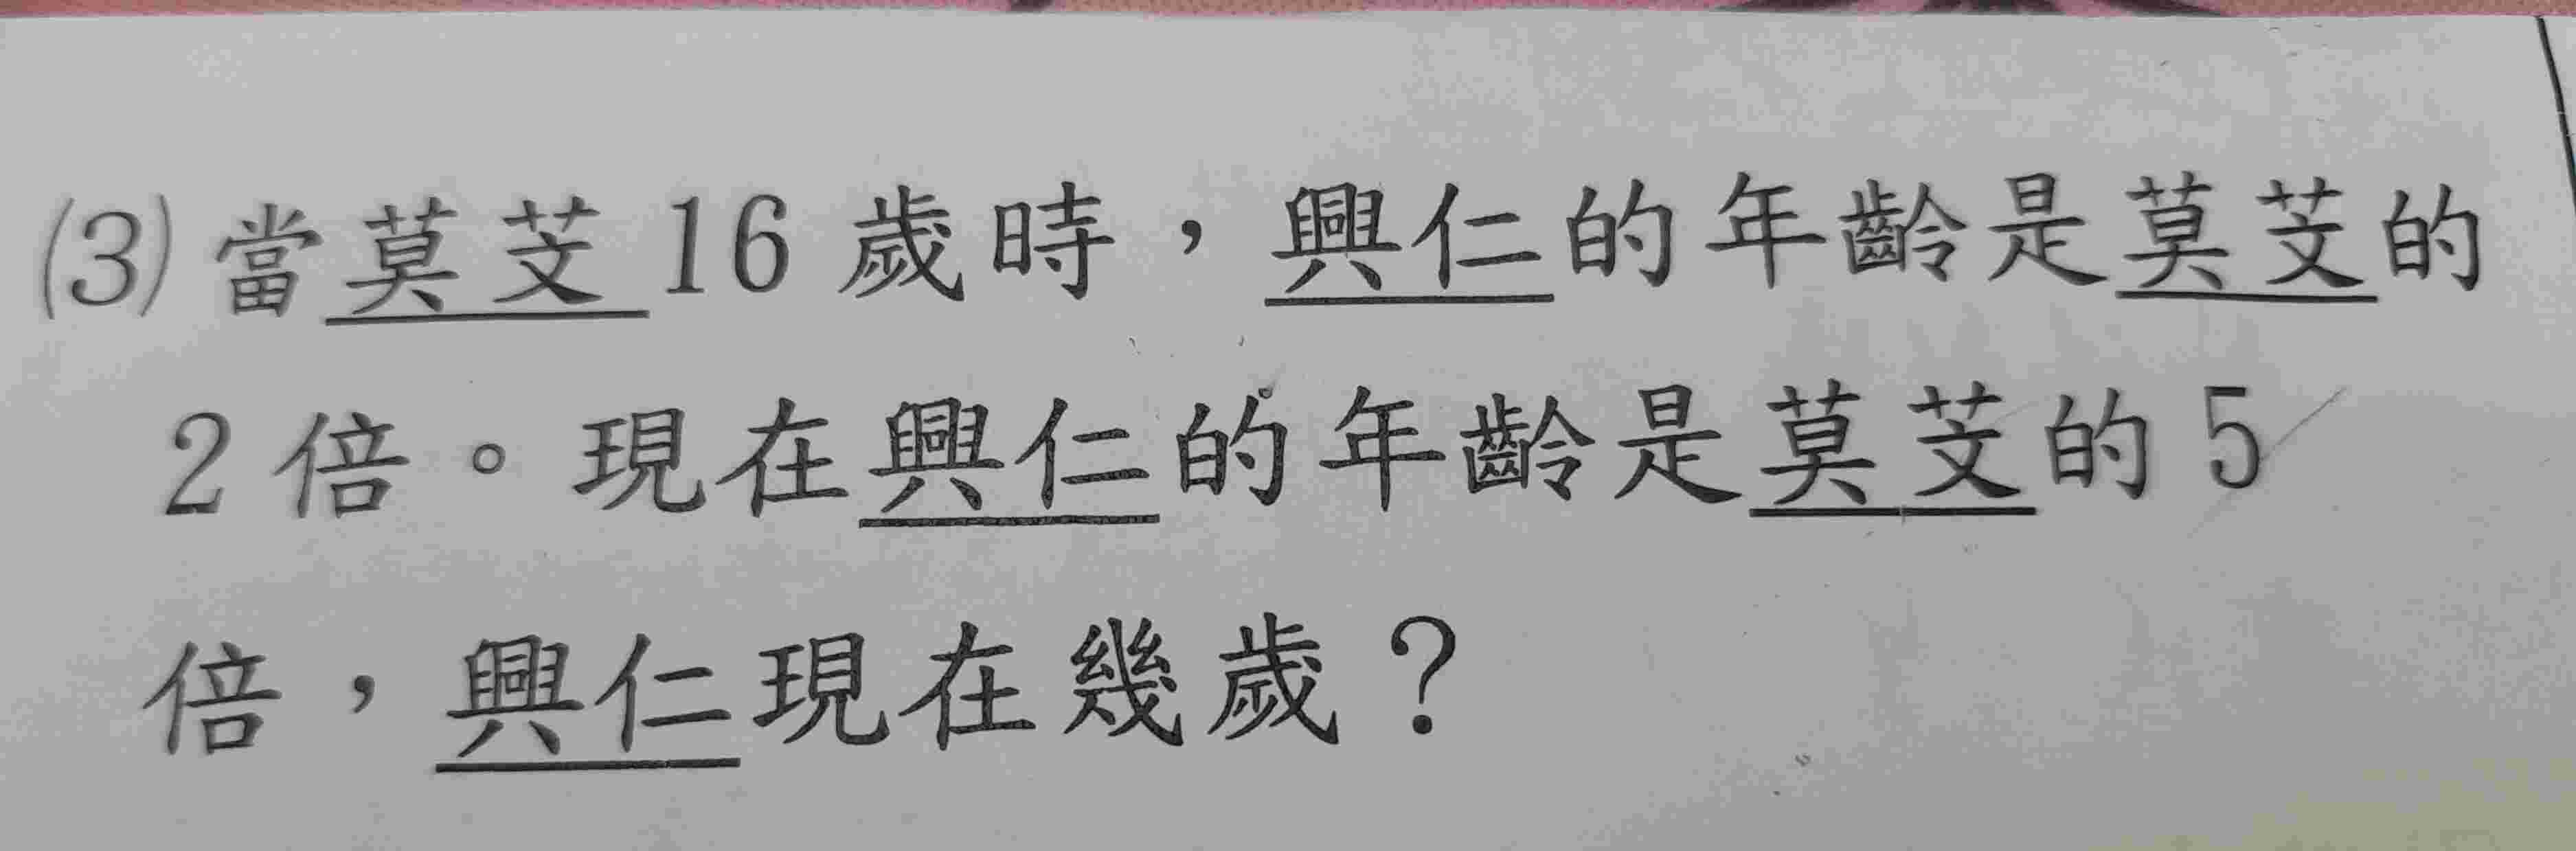 (3)當莫芠16歲時，興仁的年齡是莫芠的
2倍。現在興仁的年齡是莫芠的5
倍，興仁現在幾歲？